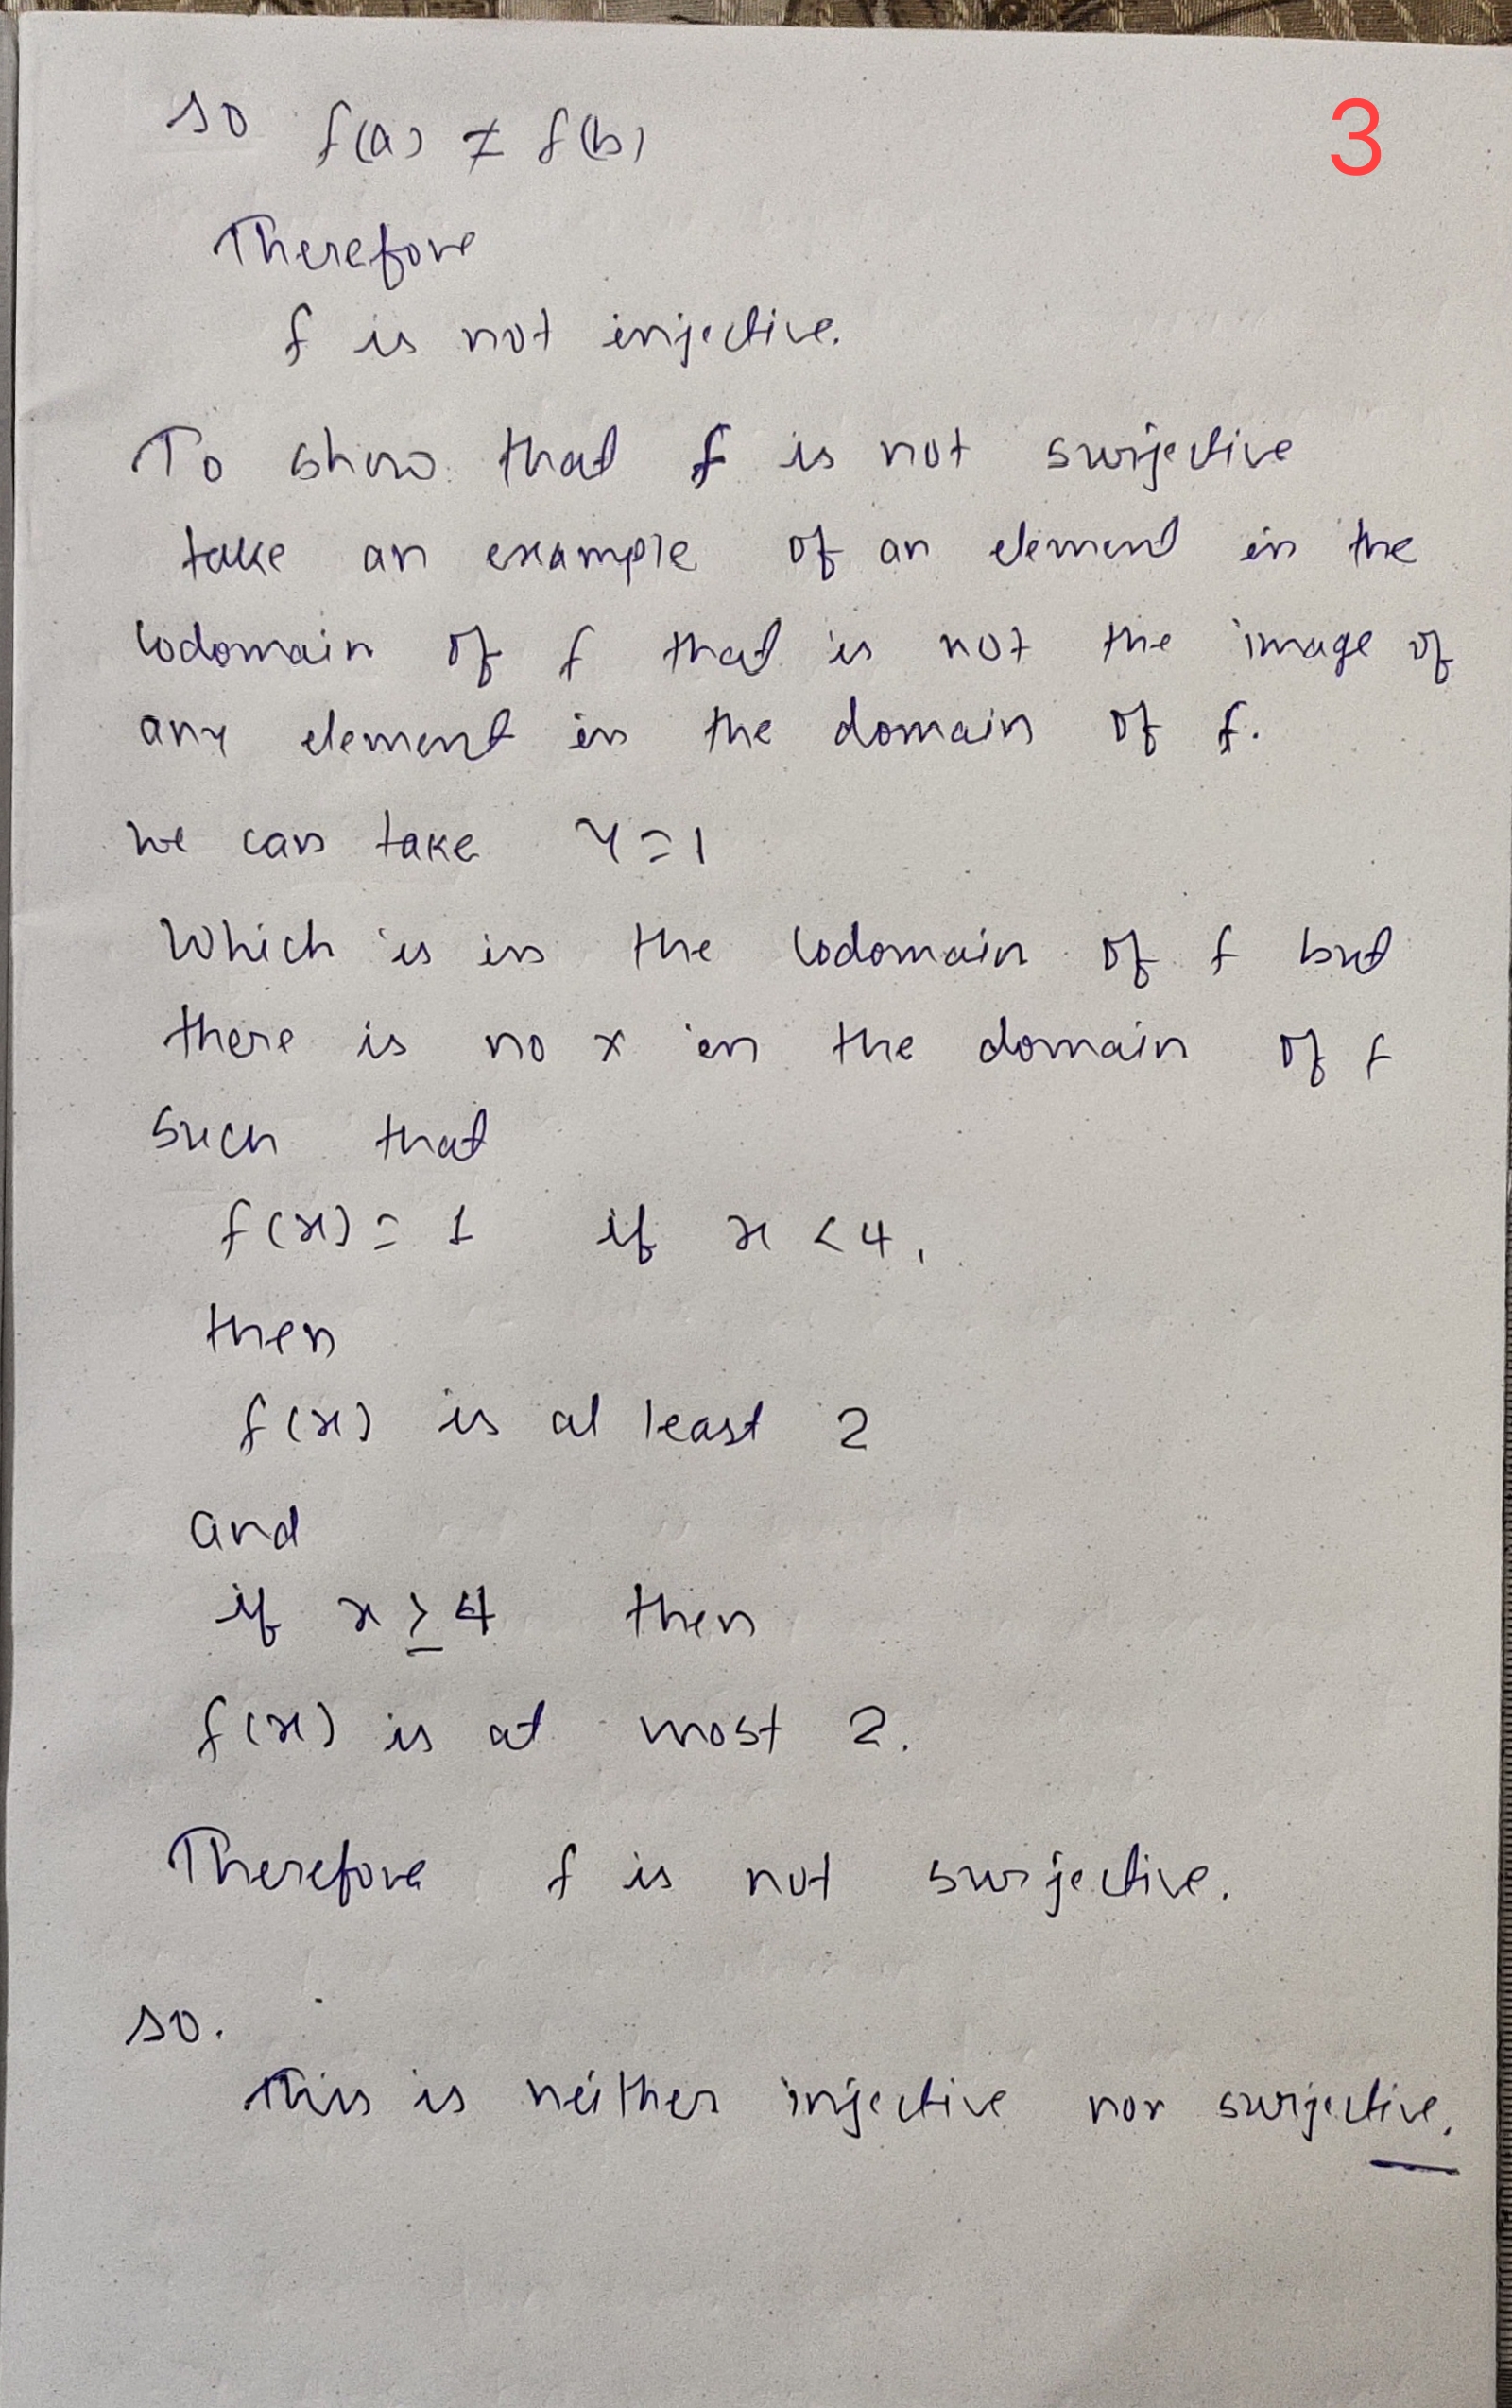 so f(a) ≠ f(b)
3
Therefore
f is not injective.
To show that f is not surjective
take an example of an element in the
codomain of f that is not the image of
any element in the domain of f.
we can take y=1
Which is in the codomain of f but
there is no x in the domain of f
such that
f(x) = 1 if x < 4,
then
f(x) is at least 2
and
if x ≥ 4 then
f(x) is at most 2.
Therefore f is not surjective.
so.
this is neither injective nor surjective.